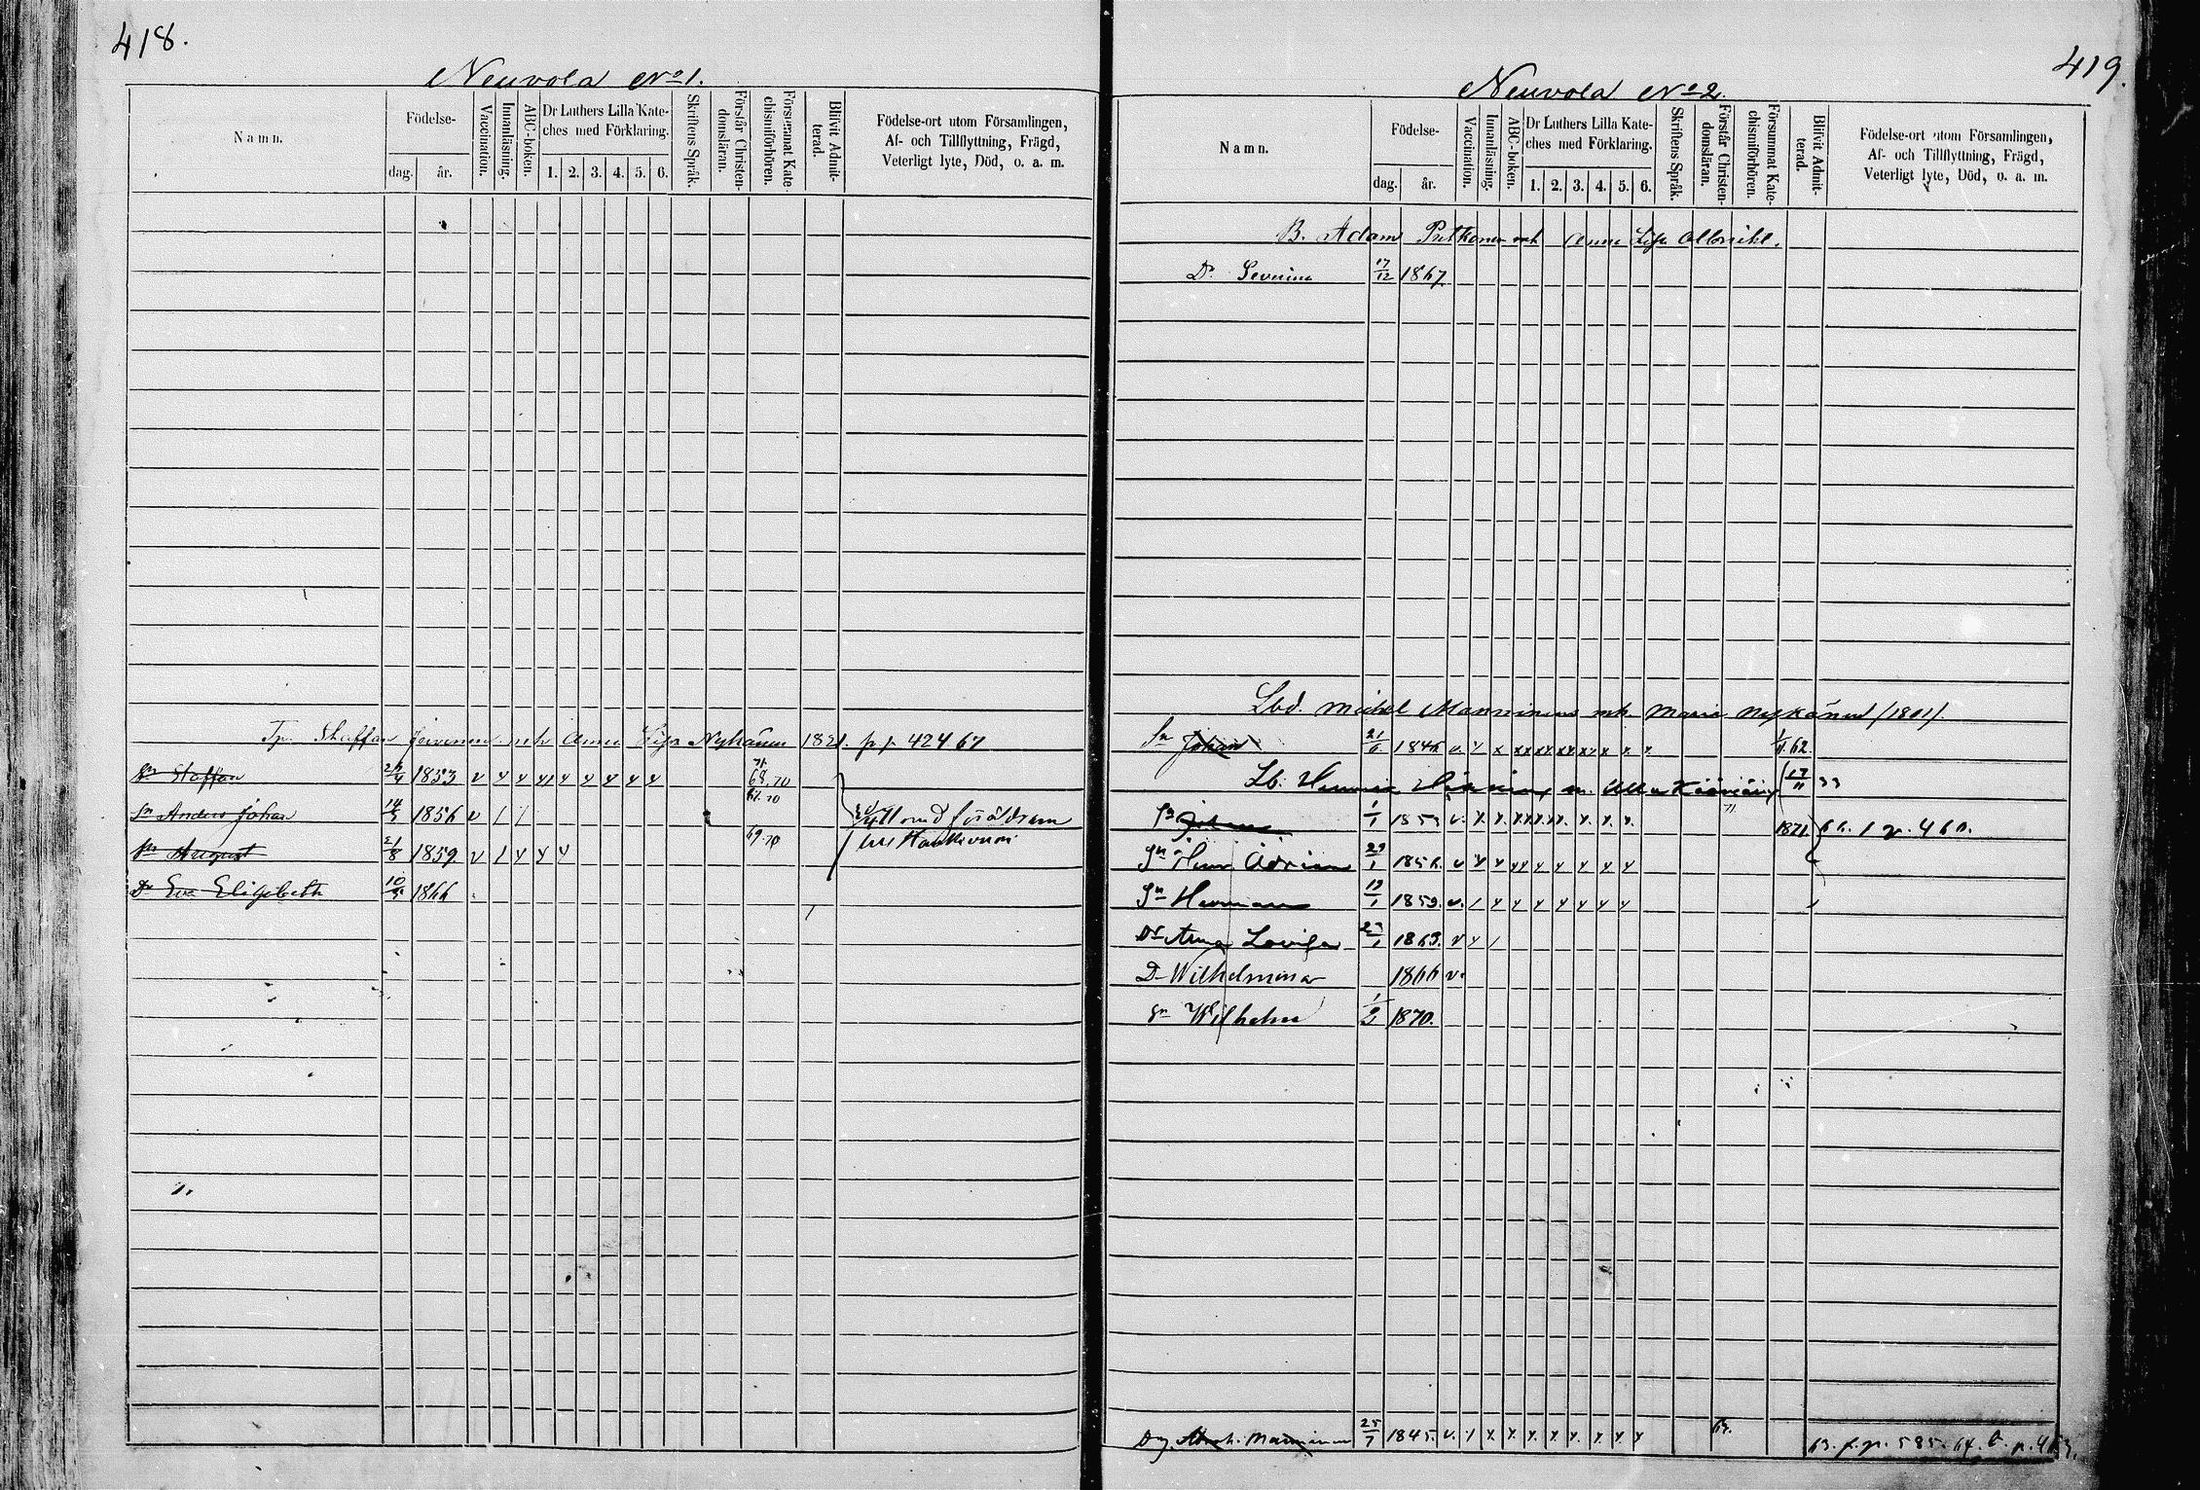 418.
Neuvola No 1.
Namn.
Födelse-
dag.
år.
Vaccination.
Innanläsning.
ABC-boken.
Dr Luthers Lilla Kate-
ches med Förklaring.
1. 2. 3. 4. 5. 6.
Skriftens Språk.
Förstår Christen-
domsläran.
Försummat Kate-
chismiförhören.
Blifvit Admit-
terad.
Födelse-ort utom Församlingen,
Af- och Tillflyttning, Frägd,
Veterligt lyte, Död, o. a. m.
Staffan Anna Lisa Nykänen 1821. 424 67
Sn Staffan 1853 v x x x x x x x x 71 68.70
Sn Anders Johan 14/5 1856 v 1 67.70 föräldrarne
Sn August 21/8 1859 v 1 x x x 69.70
Dr Eva Elisabeth 1866
419.
Neuvola No 2.
Namn.
Födelse-
dag.
år.
Vaccination.
Innanläsning.
ABC-boken.
Dr Luthers Lilla Kate-
ches med Förklaring.
1. 2. 3. 4. 5. 6.
Skriftens Språk.
Förstår Christen-
domsläran.
Försummat Kate-
chismiförhören.
Blifvit Admit-
terad.
Födelse-ort utom Församlingen,
Af- och Tillflyttning, Frägd,
Veterligt lyte, Död, o. a. m.
B. Adam Putkonen och Anna Lisa
Dr Severina 17/12 1867
Lbd. Michel Manninens mh. Maria Nykänen (1801).
Sn Johan 1846 v. x x xx xx xx xx x x 62.
Lb. m. Ulla 17/11
Sn Johan 1/1 1853 v. x x. 71 1871 p. 460.
Sn Adrian 29/1 1856. v x x xx x x x x x
Sn Herman 19/1 1859. v. 1 x x x x x x x
Dr Anna Lovisa 1863. v x 1
D- Wilhelmina 1866 v.
Sn Wilhelm 1870.
Dg. Manninen 25/7 1845. v. 1 x. x. x. x. x. x. x 63. 63. p. 585. 64.